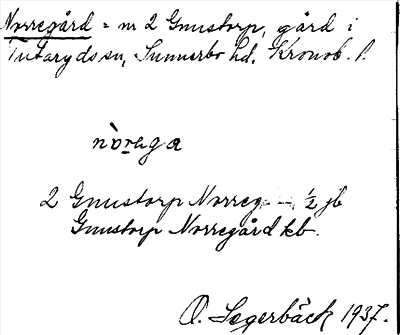 Norregård = nr 2 Gnustorp, gård i
Tutaryds sn, Sunnerbo hd, Kronob. l.
nòrega
2 Gnustorp Norreg. — 1/2 jb
Gnustorp Norregård kb.
O. Segerbäck 1937.